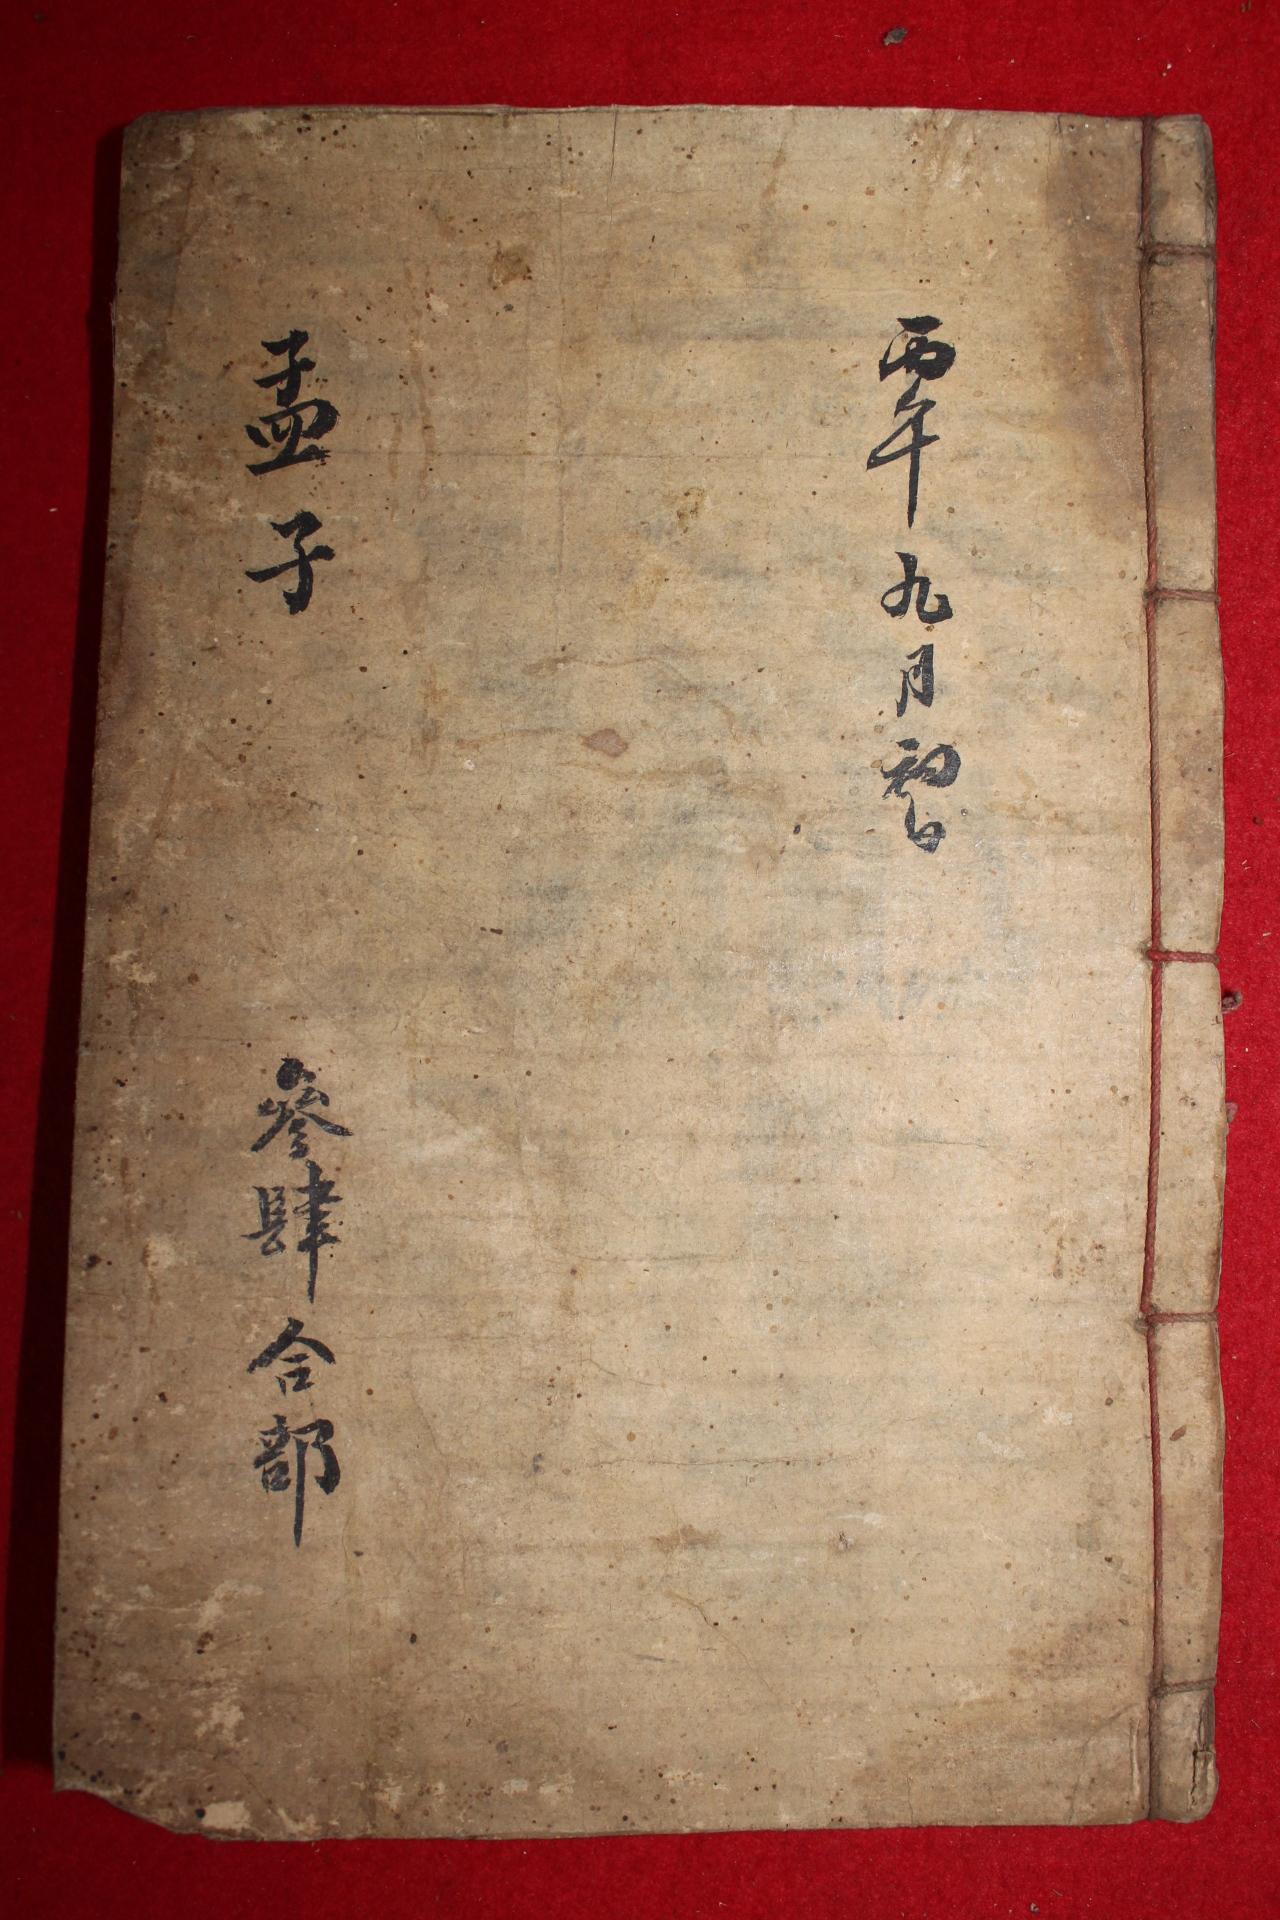 丙午九月初一日
孟子
參肆合部